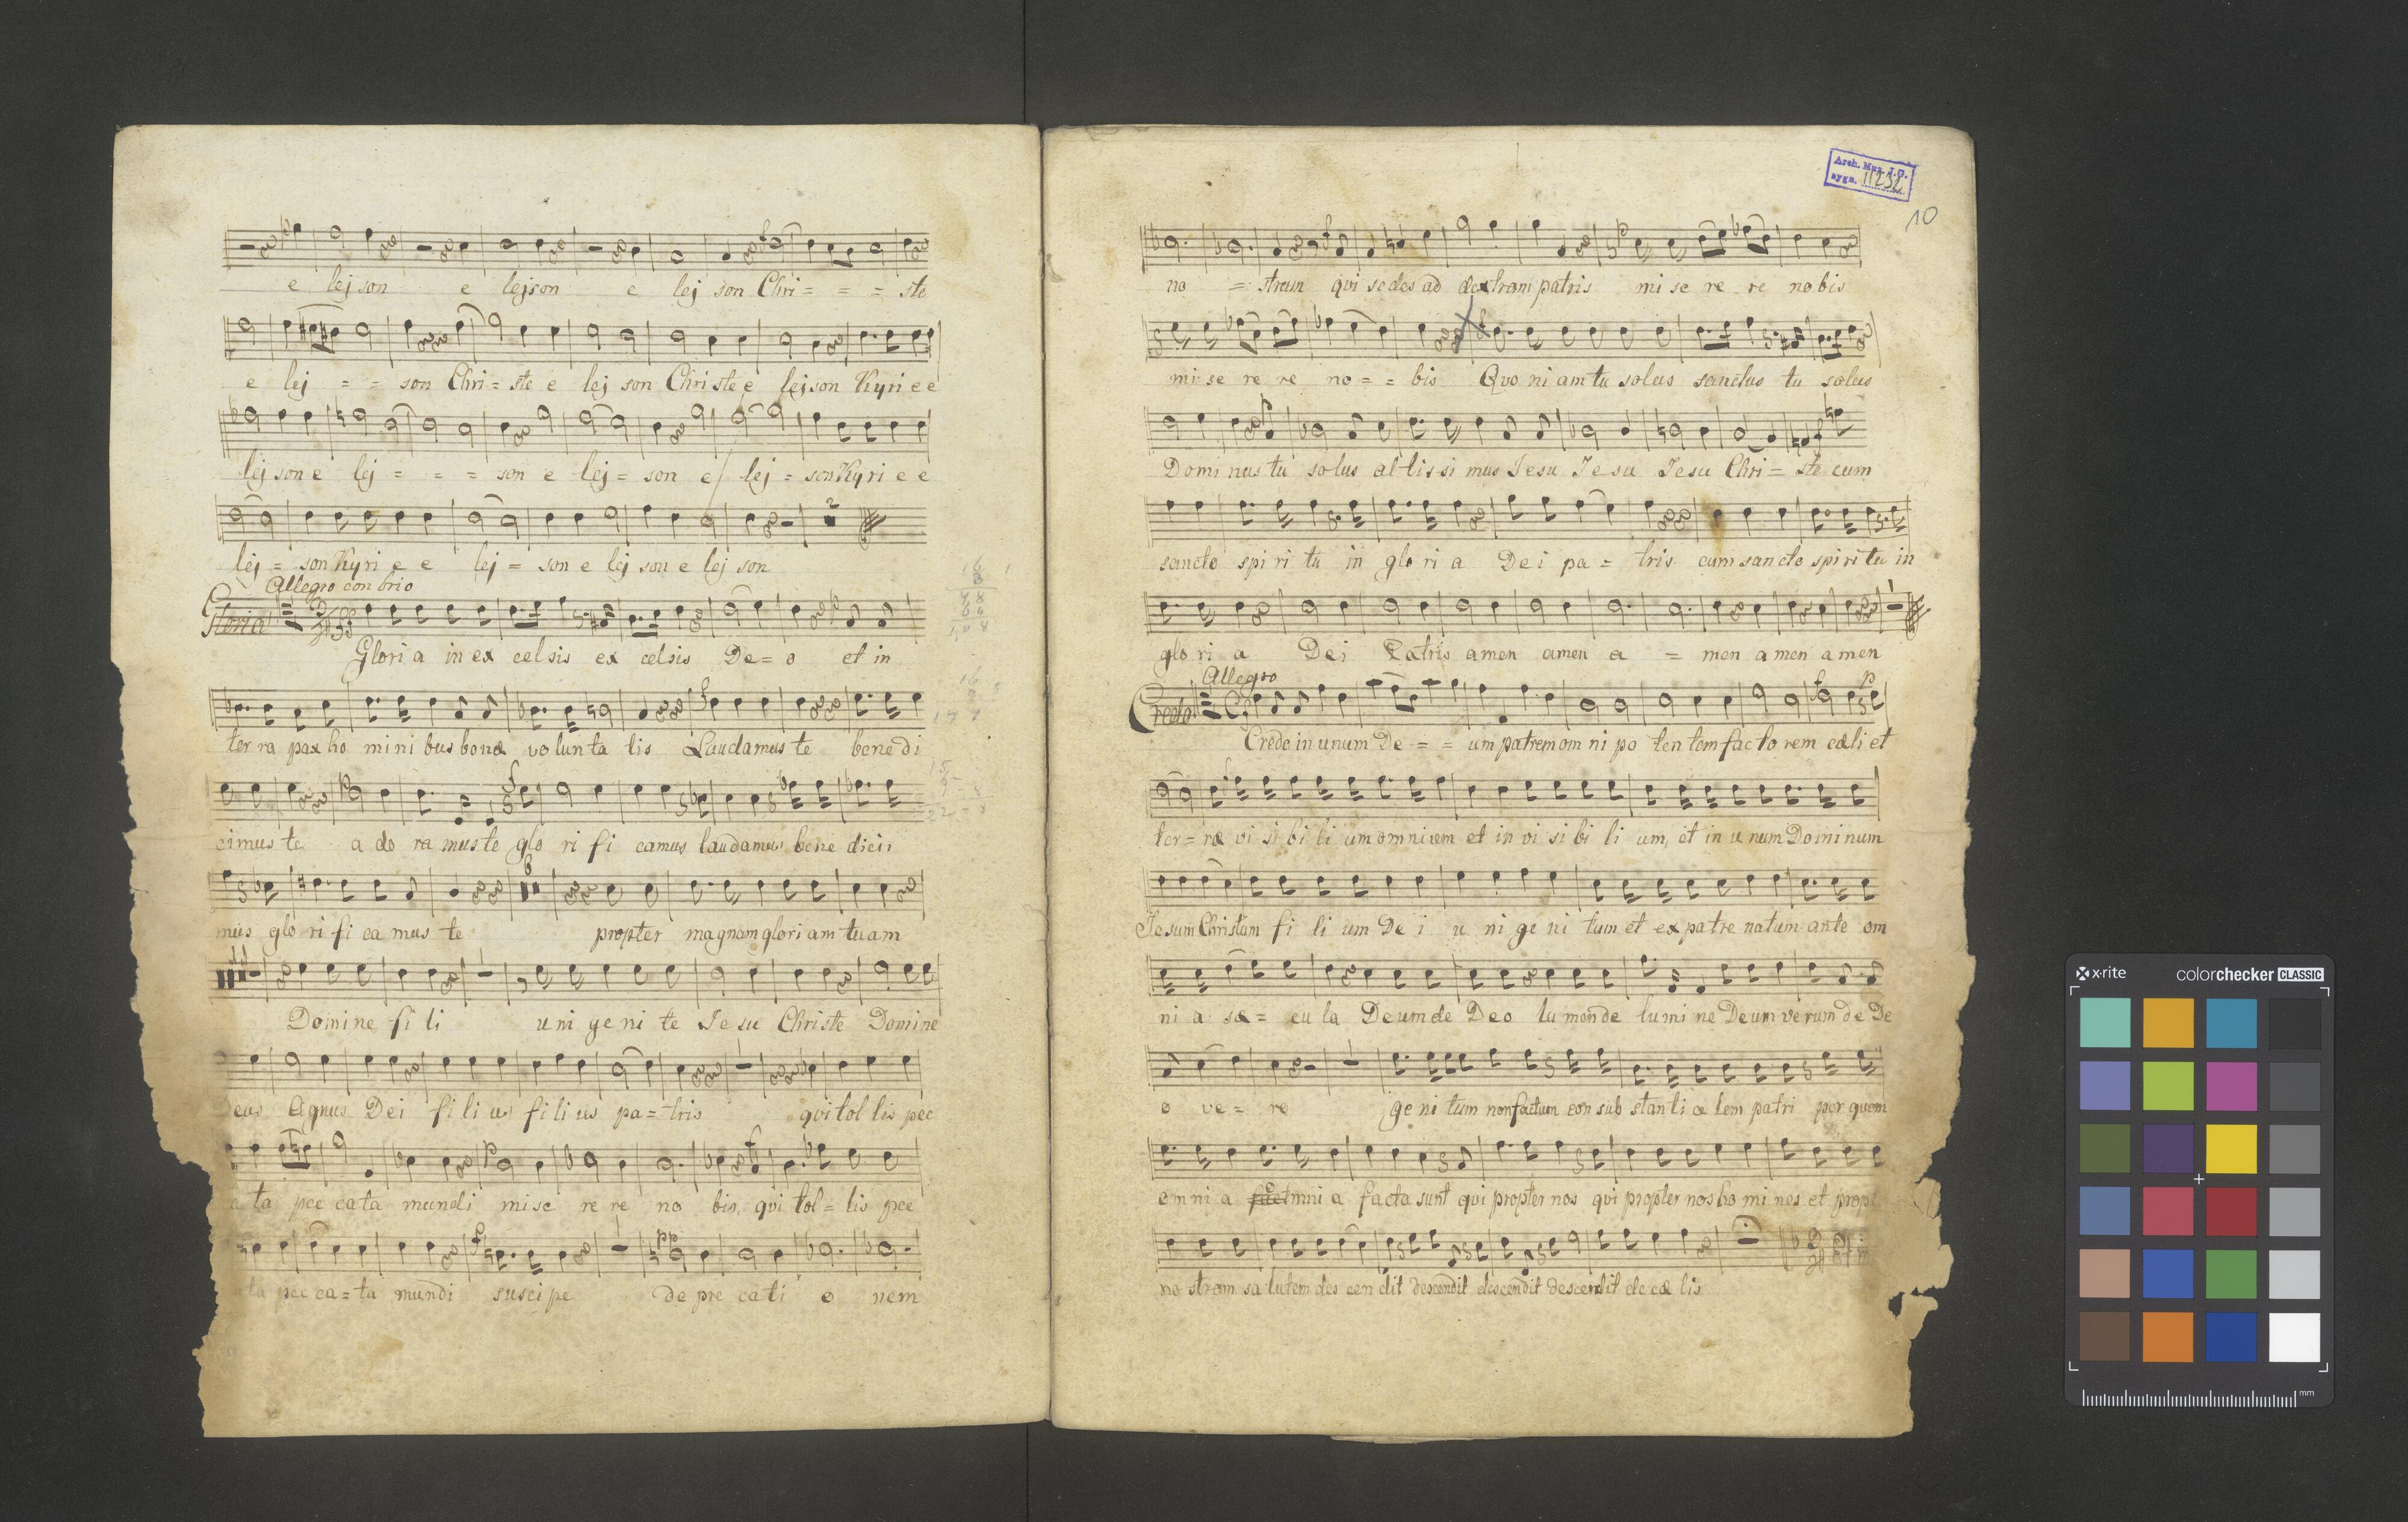 e lej son e lejson e lej son Chri = = = ste
e lej = = son Chri = ste e lej son Christe e lejson Kyri e e
lej son e lej = = = son e lej = son e lej = son Kyri e e
2
lej = son Kyri e e lej = son e lej son e lej son
Allegro con brio
Gloria
Gloria in ex celsis ex celsis De = o et in
ter ra pax ho mini bus bonæ volunta tis Laudamus te bene di
cimus te a do ra mus te glo ri fi camus laudamus bene dici
6
mus glo ri fi ca mus te propter magnam gloriam tuam
Domine fi li uni ge ni te Je su Christe Domine
Deus Agnus Dei fi li us fi li us pa = tris qui tol lis pec
ta pec ca ta mundi mise re re no bis, qui tol = lis pec
pp
ta pec ca = ta mundi suscipe de pre cati o nem
Arch. Muz. J.G.
sygn. 11232
10
no = strum qui sedes ad dextram patris mi se re re nobis
mi se re re no = = bis Quo ni am tu solus sanctus tu solus
Dominus tu solus altissi mus Jesu Jesu Jesu Chri = ste cum
sancto spi ri tu in glo ri a De i pa = tris cum sancto spiritu in
glo ri a Dei Patris amen amen a = men amen amen
Allegro
Credo
Credo in unum De = = um patrem om ni po ten tem facto rem cæli et
ter = ræ vi si bi li um omnium et in vi si bi li um, et in u num Dominum
Jesum Christum fi li um De i u ni ge ni tum et ex patre natum ante om
ni a sæ = cu la Deum de Deo lu men de lumi ne Deum verum de De
o ve = ro ge ni tum non factum con sub stanti a lem patri per quem
omni a omni a facta sunt qui propter nos qui propter nos ho mi nes et propt
no stram sa lutem des cen dit descendit descendit descendit de cæ lis
x-rite colorchecker CLASSIC
mm